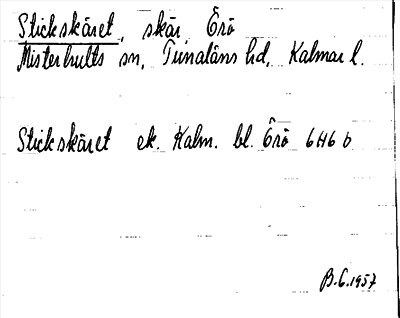 Stickskäret, skär, Örö
Misterhults sn, Tunaläns hd, Kalmar l.
Stickskäret ek. Kalm. bl. Örö 6H6b
B.G.1957